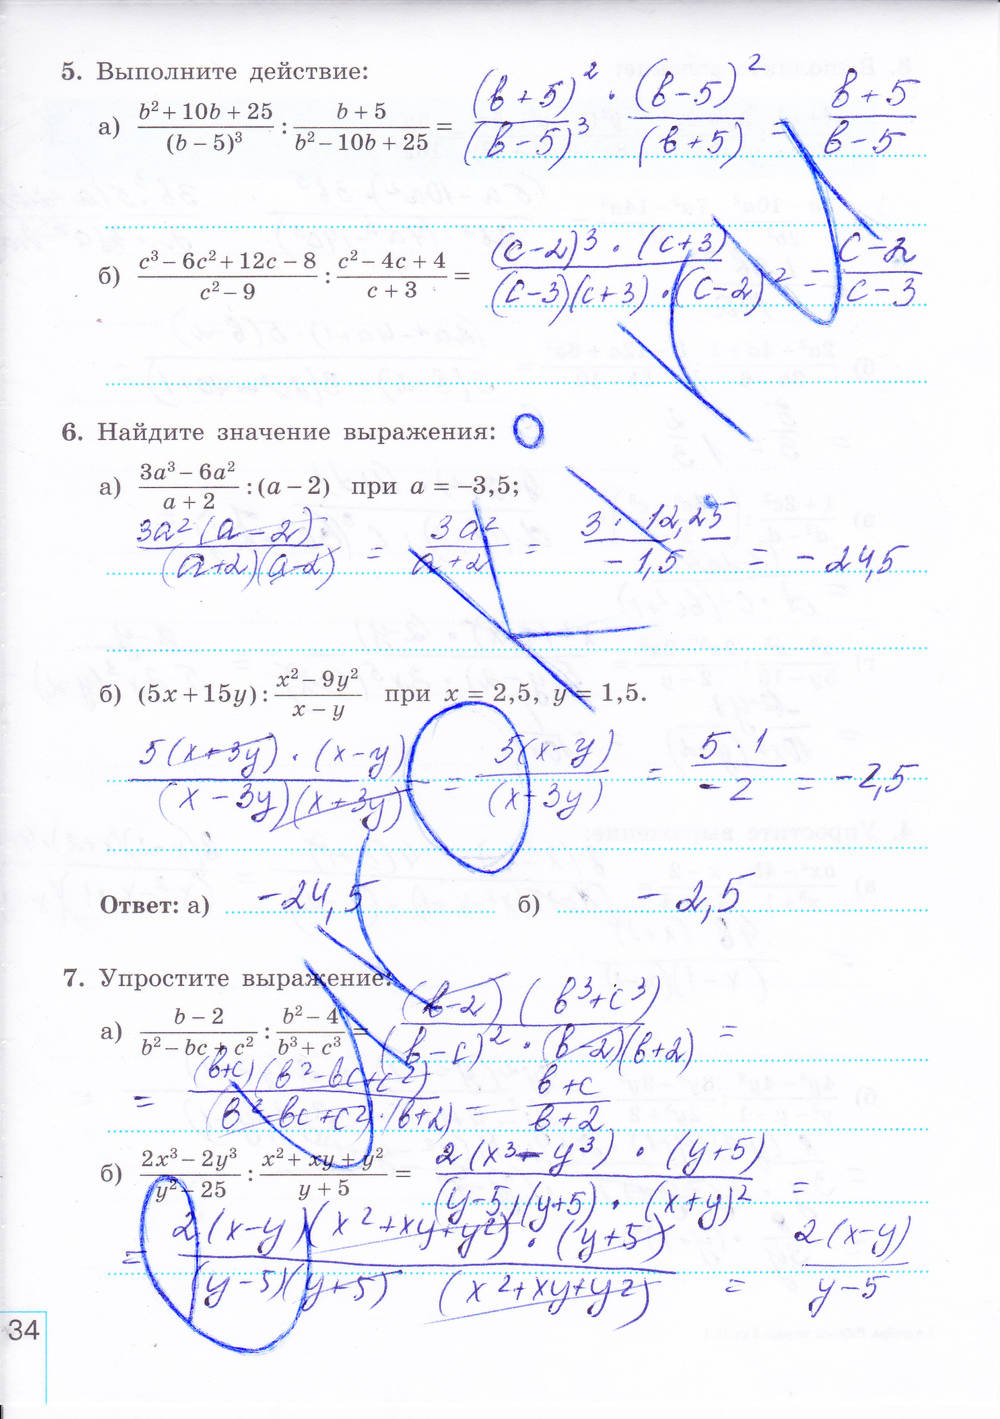 5. Выполните действие:
а) (b² + 10b + 25)/(b − 5)³ : (b + 5)/(b² − 10b + 25) = (b+5)²/(b−5)³ · (b−5)²/(b+5) = (b+5)/(b−5)
б) (c³ − 6c² + 12c − 8)/(c² − 9) : (c² − 4c + 4)/(c + 3) = (c−2)³ · (c+3)/(c−3)(c+3) · (c−2)² = (c−2)/(c−3)
6. Найдите значение выражения:
а) (3a³ − 6a²)/(a + 2) : (a − 2) при a = −3,5;
3a²(a−2)/(a+2)(a−2) = 3a²/(a+2) = 3 · 12,25/−1,5 = −24,5
б) (5x + 15y) : (x² − 9y²)/(x − y) при x = 2,5, y = 1,5.
5(x+3y) · (x−y)/(x−3y)(x+3y) = 5(x−y)/(x−3y) = 5 · 1/−2 = −2,5
Ответ: а) −24,5 б) −2,5
7. Упростите выражение:
а) (b − 2)/(b² − bc + c²) : (b² − 4)/(b³ + c³) = (b−2)(b³+c³)/(b−c)² · (b−2)(b+2) =
= (b+c)(b²−bc+c²)/(b²−bc+c²) · (b+2) = (b+c)/(b+2)
б) (2x³ − 2y³)/(y² − 25) : (x² + xy + y²)/(y + 5) = 2(x³−y³) · (y+5)/(y−5)(y+5) · (x+y)² =
= 2(x−y)(x²+xy+y²) · (y+5)/(y−5)(y+5)(x²+xy+y²) = 2(x−y)/(y−5)
34